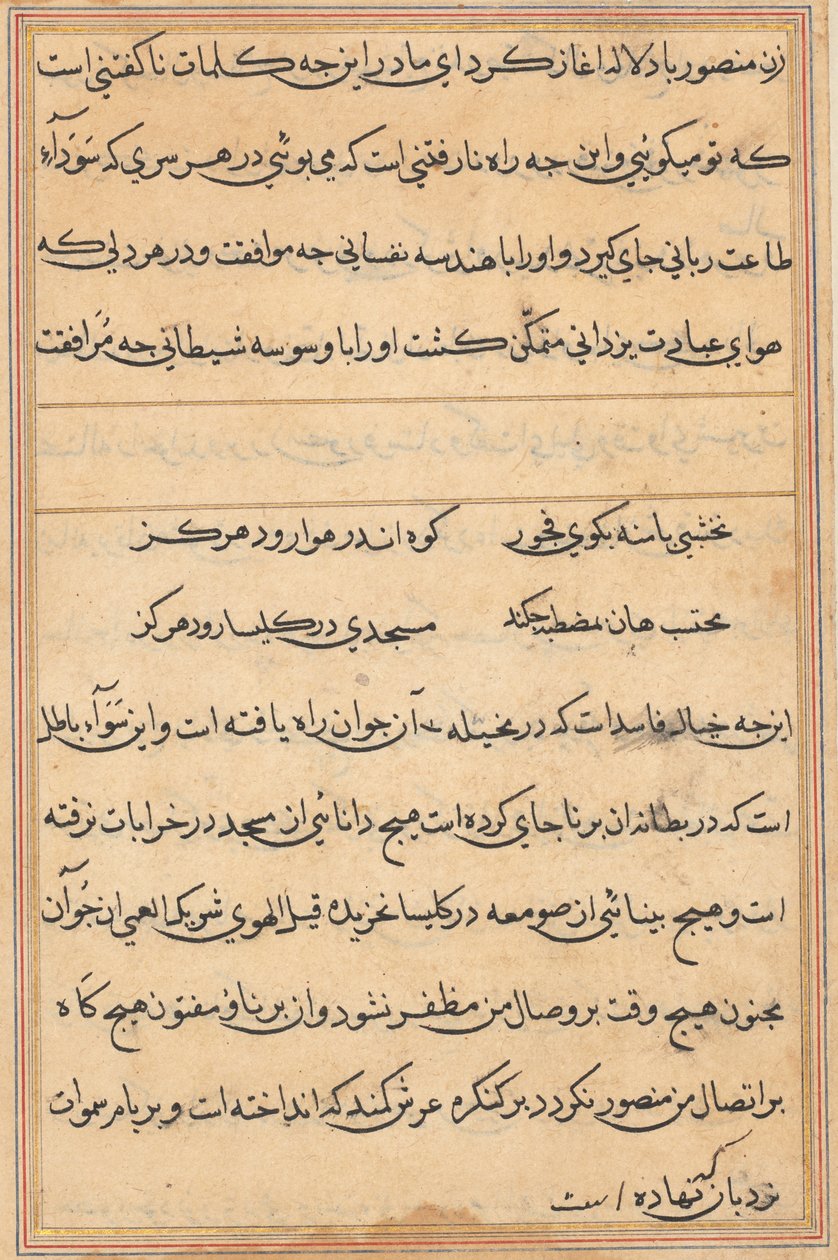 زن منصور با دلاله اغاز كرد اي مادر اين جه كلمات ناكفتني است
كه تو ميكوئيي و اين جه راه نارفتني است كه مي بوئيي در هر سري كه سَوَدآءِ
طاعت رباني جاي كيرد و اورا با هندسه نفساني جه موافقت و در هر دلي كه
هواي عبادت يزداني متمكّن كشت اورا با وسوسه شيطاني جه مُرافقت
نخشبي با منه بكوي فجور كوه اندر هوا رود هركز
محتسب هان بمضطبه جكند مسجدي در كليسا رود هركز
اين جه خيال فاسد است كه در مخيله آن جوان راه يافته است و اين سَوَدآءِ باطل
است كه در بطانه ان برنا جاي كرده است هيج دانائيي از مسجد در خرابات نرفته
است و هيج بينائيي از صومعه در كليسا نخزيده قيل الهوي شريك العمي ان جُوآن
مجنون هيج وقت بر وصال من مظفر نشود و ان برناؤ مفتون هيج كَاه
بر اتصال من منصور نكردد بر كنكره عرش كمند كه انداخته است و بر بام سموات
نردبان كه نهاده است